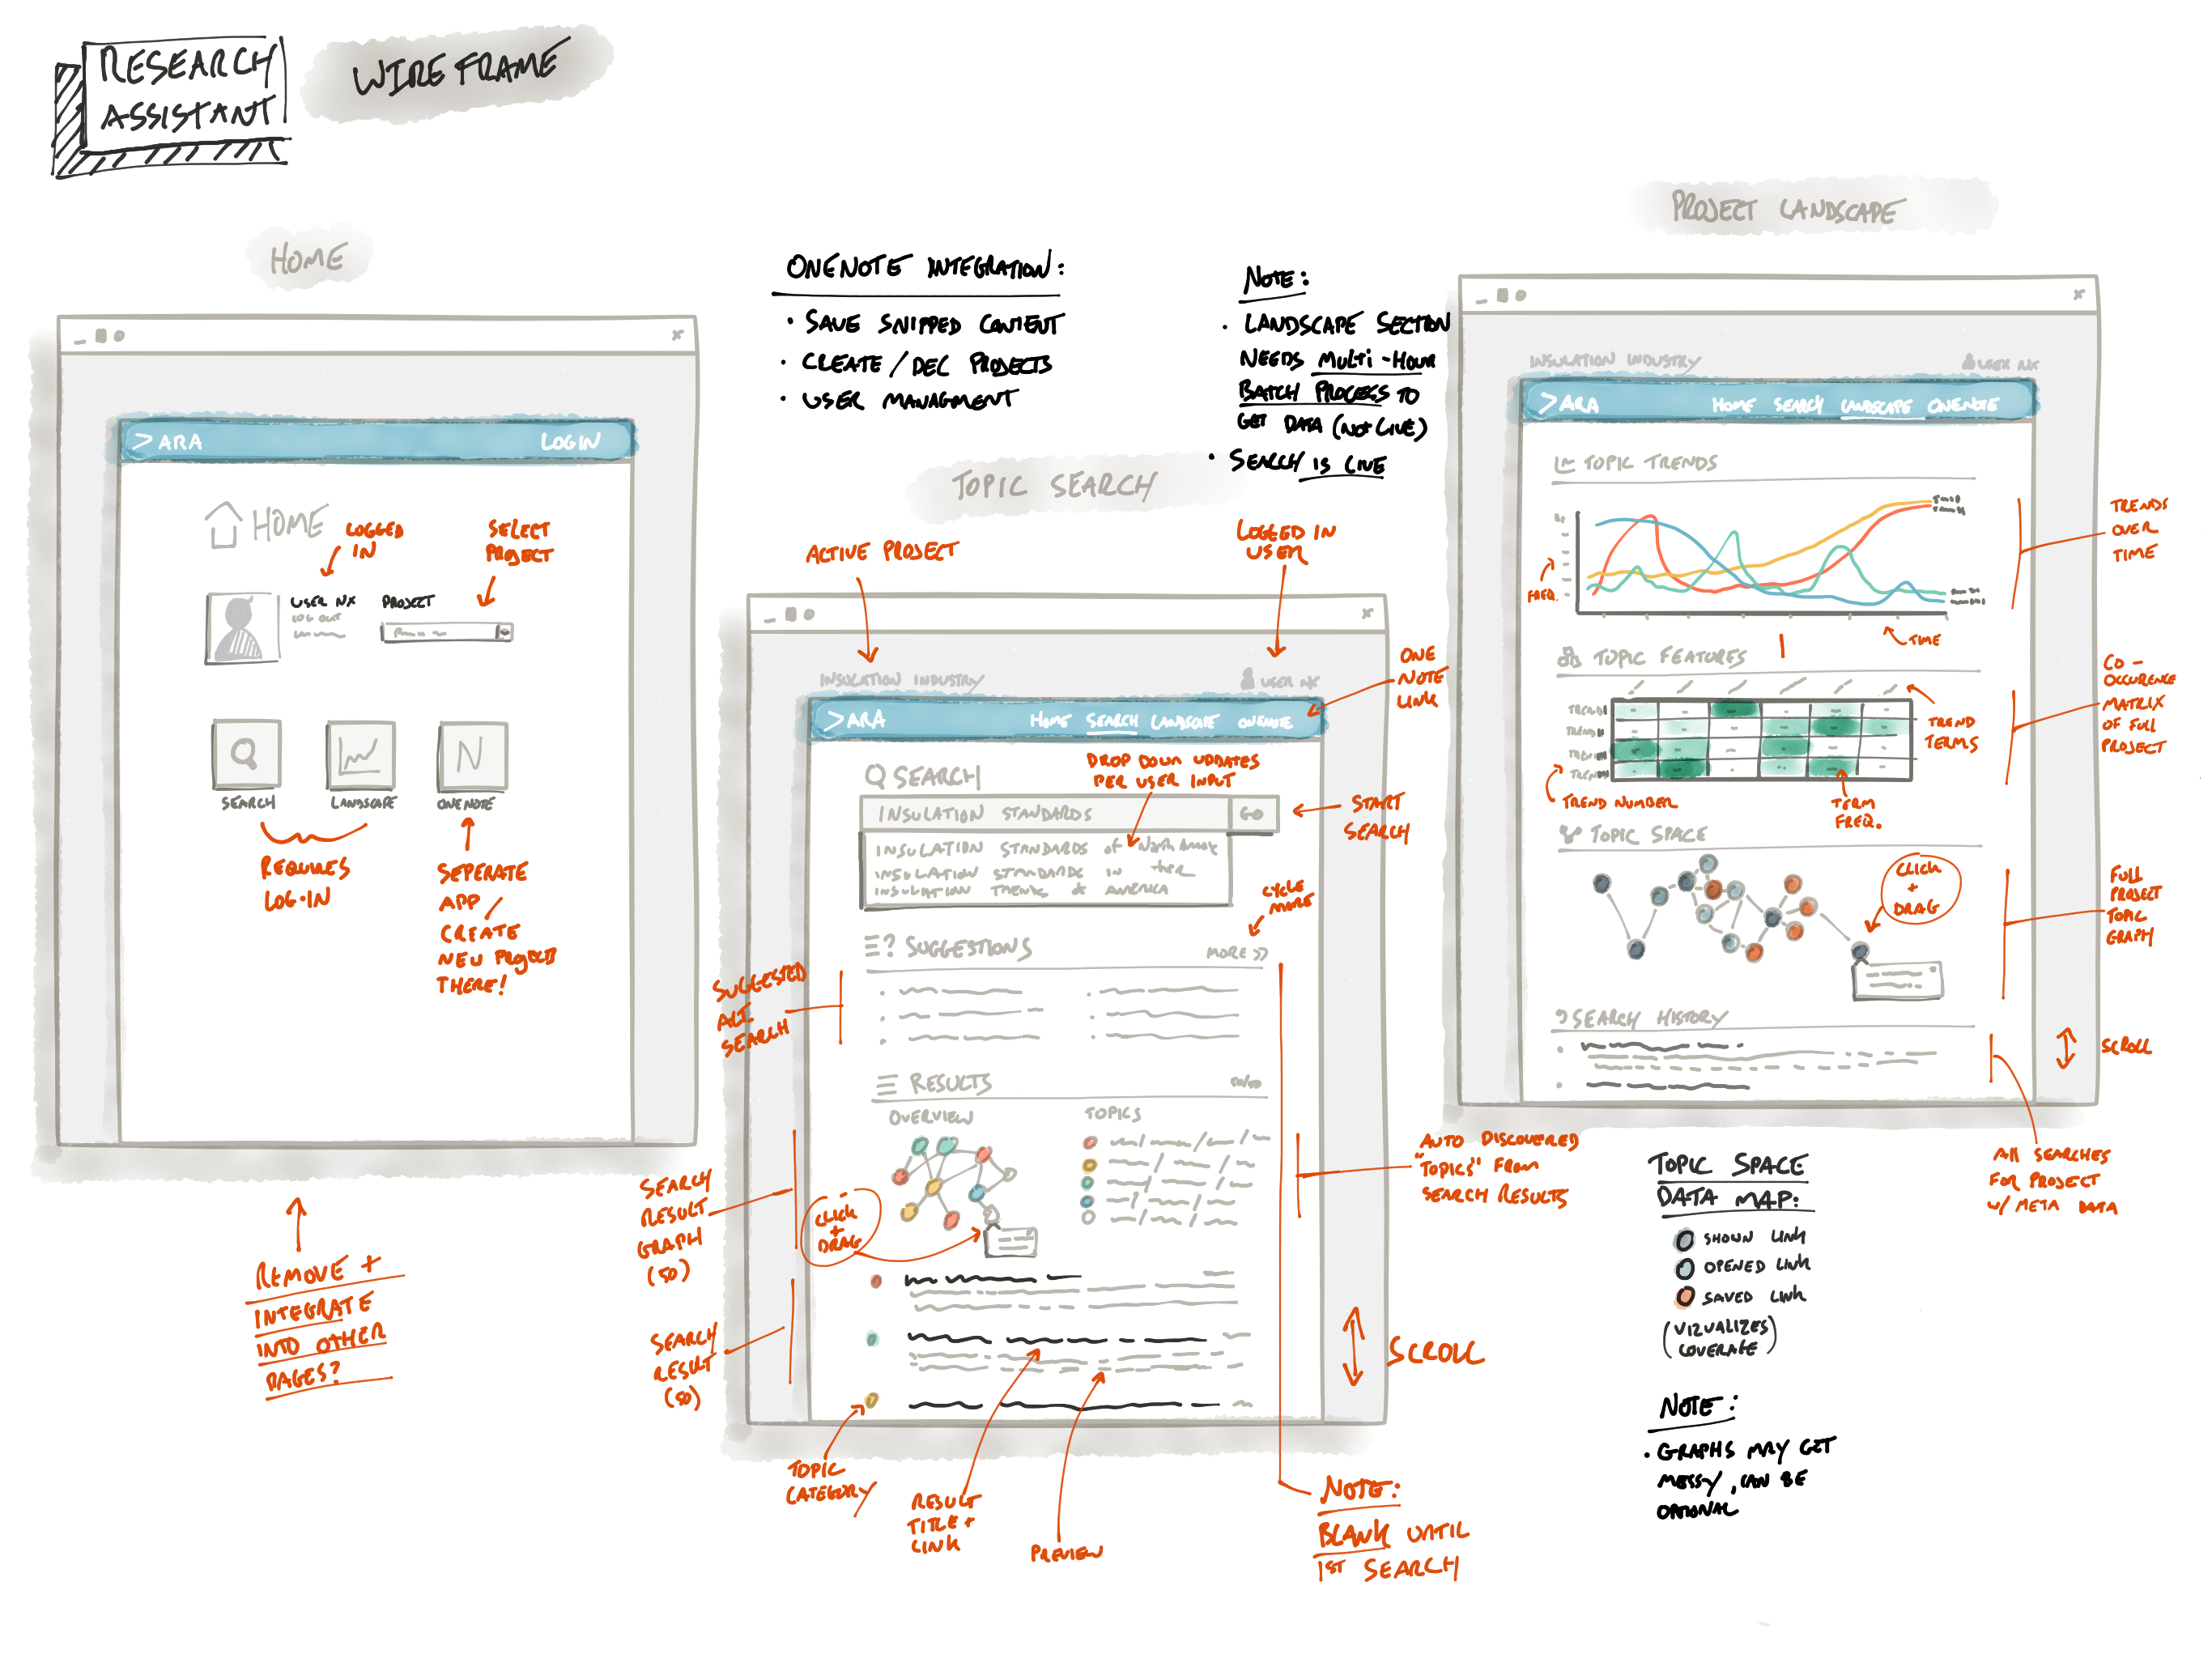 RESEARCH
ASSISTANT
WIREFRAME
HOME
> ARA
LOGIN
HOME
LOGGED
IN
SELECT
PROJECT
USER NX
LOG OUT
PROJECT
SEARCH
LANDSCAPE
ONENOTE
REQUIRES
LOG-IN
SEPERATE
APP/
CREATE
NEW PROJECTS
THERE!
REMOVE +
INTEGRATE
INTO OTHER
PAGES?
ONENOTE INTEGRATION:
• SAVE SNIPPED CONTENT
• CREATE/DEC PROJECTS
• USER MANAGMENT
NOTE:
• LANDSCAPE SECTION
NEEDS MULTI-HOUR
BATCH PROCESS TO
GET DATA (NOT LIVE)
• SEARCH IS LIVE
TOPIC SEARCH
ACTIVE PROJECT
LOGGED IN
USER
INSULATION INDUSTRY
USER NX
ONE
NOTE
LINK
> ARA
HOME SEARCH LANDSCAPE ONENOTE
SEARCH
DROP DOWN UPDATES
PER USER INPUT
INSULATION STANDARDS
GO
START
SEARCH
INSULATION STANDARDS of North
INSULATION STANDARDS IN ther
INSULATION TRENDS of AMERICA
CYCLE
MORE
? SUGGESTIONS
MORE >>
SUGGESTED
ALT.
SEARCH
RESULTS
OVERVIEW
TOPICS
SEARCH
RESULT
GRAPH
(50)
CLICK
+
DRAG
AUTO DISCOVERED
"TOPICS" FROM
SEARCH RESULTS
SEARCH
RESULT
(50)
SCROLL
TOPIC
CATEGORY
RESULT
TITLE +
LINK
PREVIEW
NOTE:
BLANK UNTIL
1ST SEARCH
PROJECT LANDSCAPE
INSULATION INDUSTRY
USER NX
> ARA
HOME SEARCH LANDSCAPE ONENOTE
TOPIC TRENDS
FREQ.
TIME
TRENDS
OVER
TIME
TOPIC FEATURES
TREND
TREND
TREND
TREND
TREND
TERMS
TREND NUMBER
TERM
FREQ.
CO-
OCCURENCE
MATRIX
OF FULL
PROJECT
TOPIC SPACE
CLICK
+
DRAG
FULL
PROJECT
TOPIC
GRAPH
SEARCH HISTORY
SCROLL
All SEARCHES
FOR PROJECT
w/ META DATA
TOPIC SPACE
DATA MAP:
SHOWN LINK
OPENED LINK
SAVED LINK
(VIZUALIZES
COVERAGE)
NOTE:
• GRAPHS MAY GET
MESSY, CAN BE
OPTIONAL